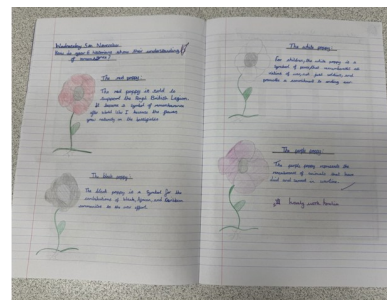 Wednesday 5th November
How do poppies
of remembrance
The red poppy:
The red poppy is sold to
support the Royal British Legion.
It became a symbol of remembrance
after World War I because the flower
grew naturally on the battlefields
The black poppy:
The black poppy is a symbol for the
contributions of black, African, and Caribbean
communities to the war effort.
The white poppy:
For children, the white poppy is a
symbol of
of war, not just soldiers, and
a commitment to ending war
The purple poppy:
The purple poppy represents the
remembrance of animals that have
died and served in wartime.
lovely work